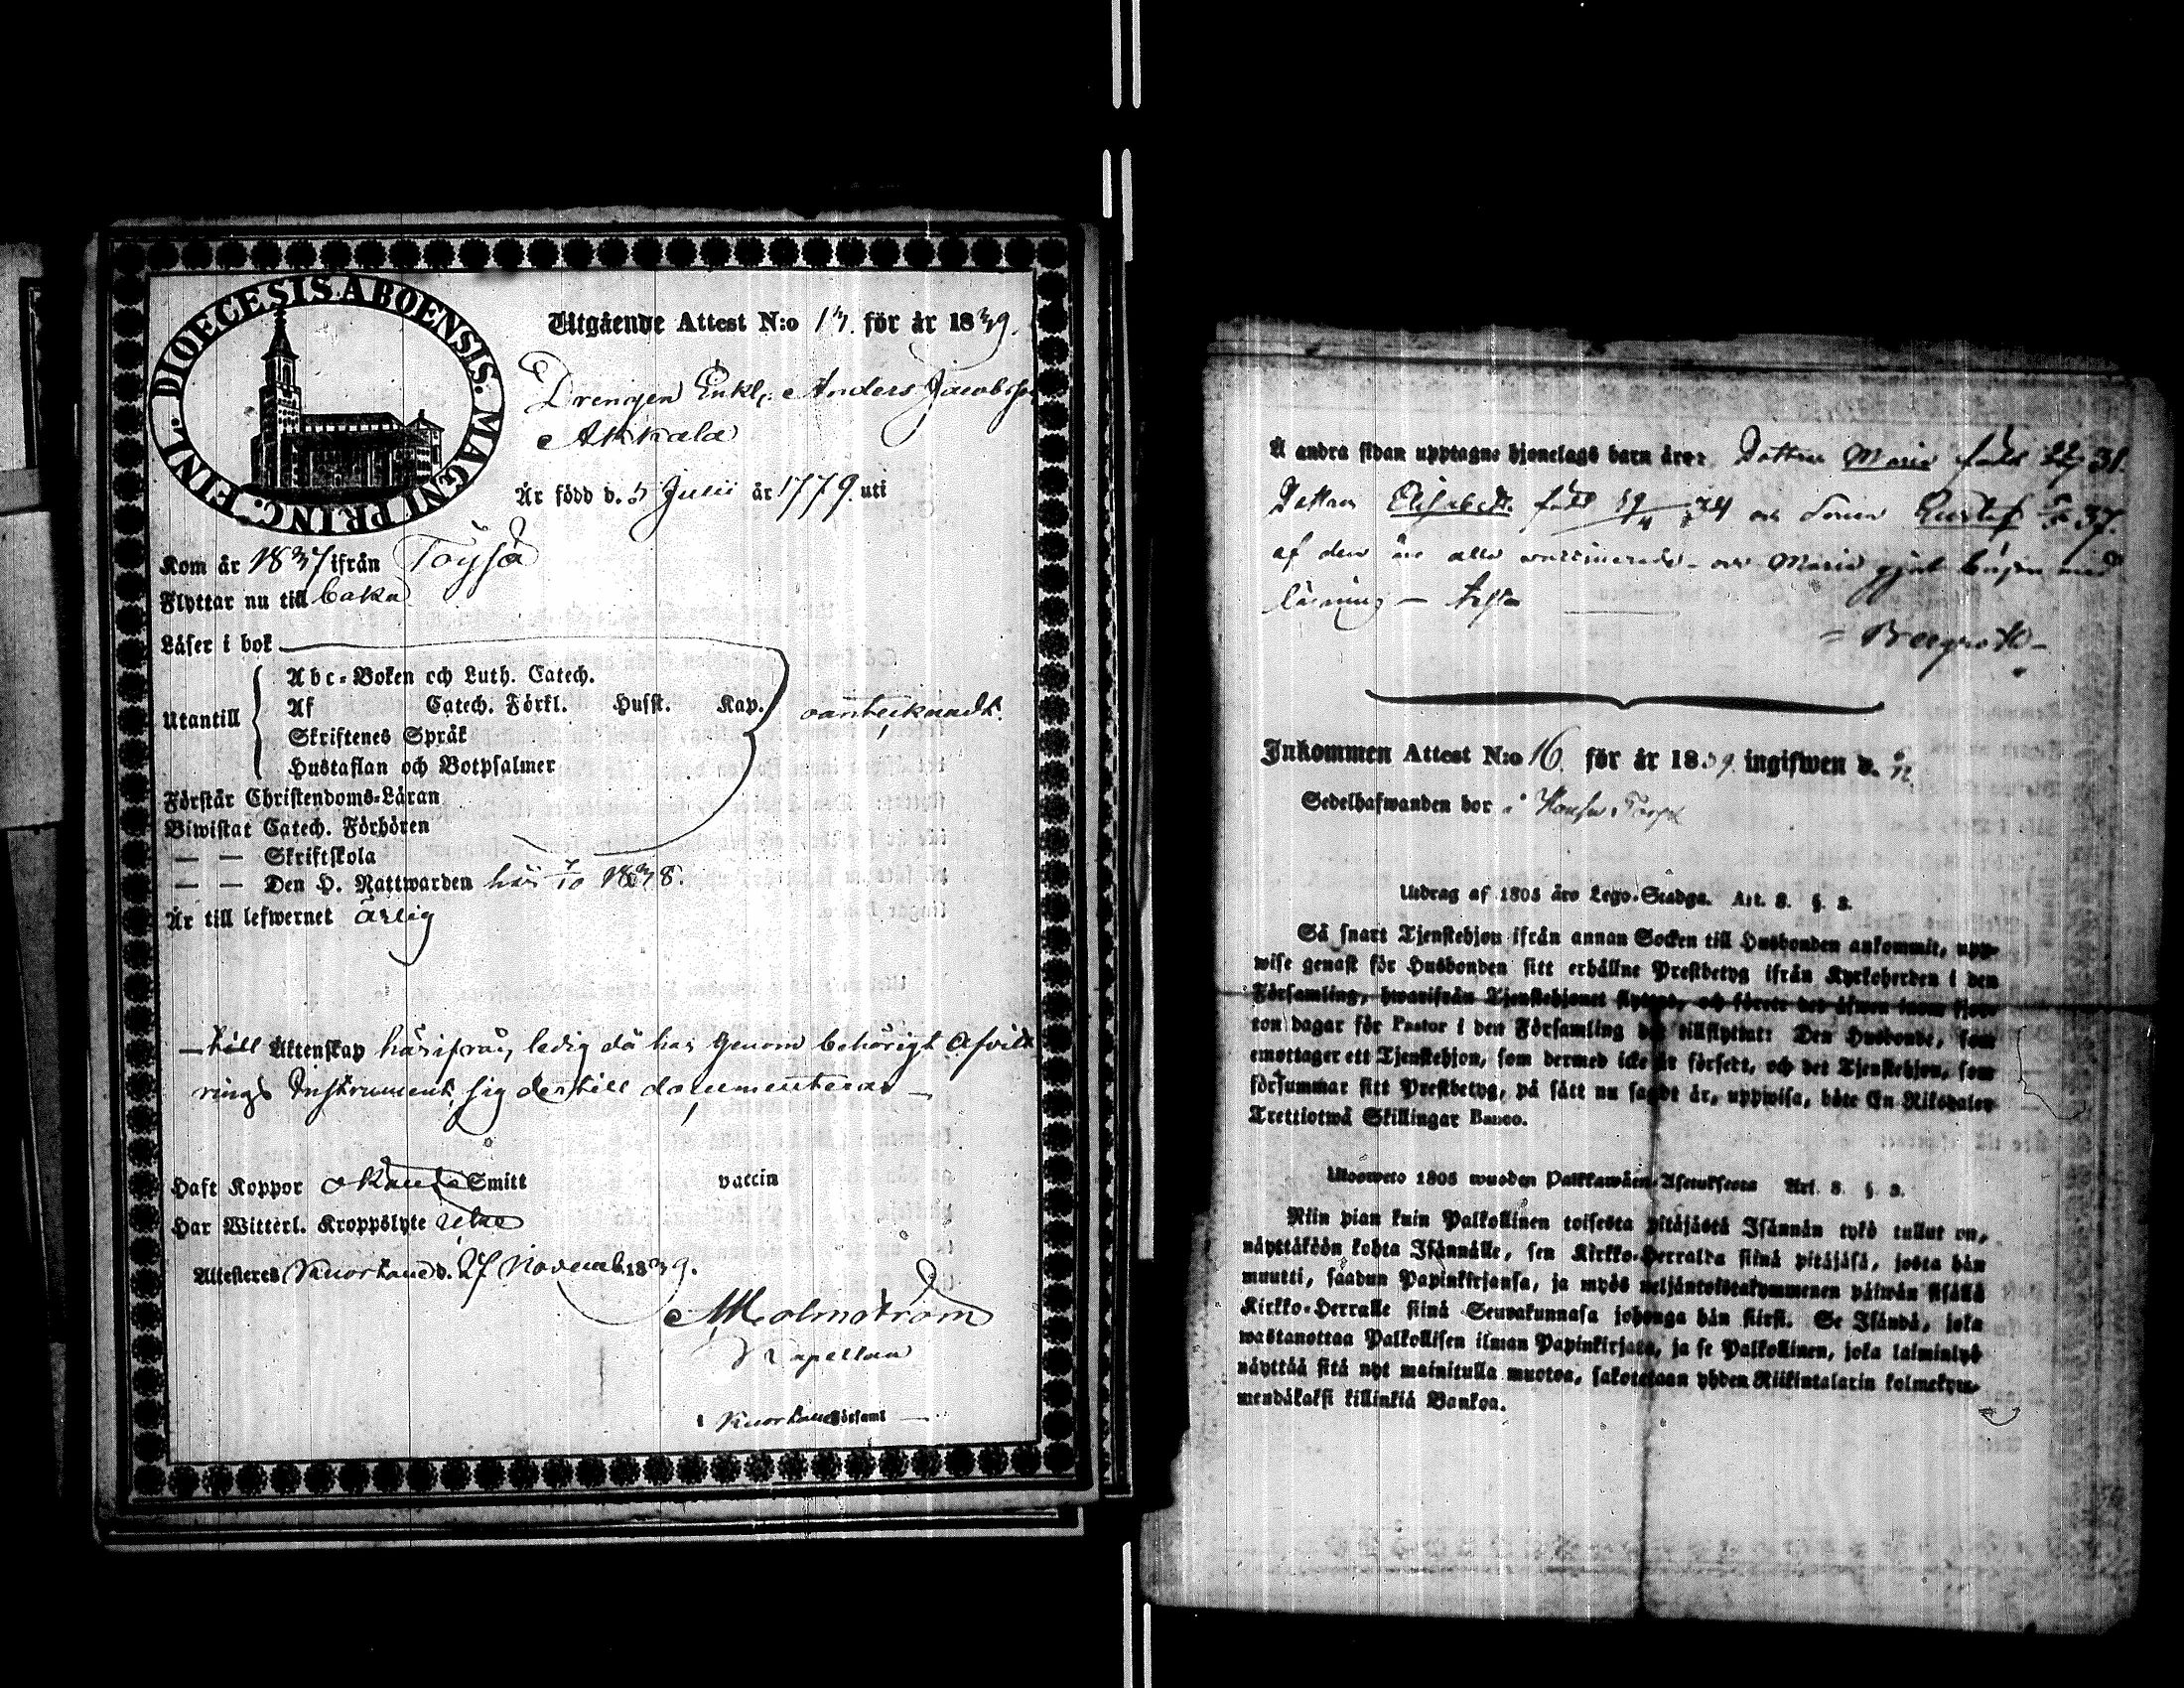 DIOECESIS ABOENSIS. MAGNI PRINC. FINL.
Utgående Attest N:o 13. för år 1839.
Drengen Enkl. Anders Jacobsson
Akkala
Är född d. 5 Julii år 1779. uti
Kom år 1837 ifrån Töysä
Flyttar nu till baka
Läser i bok
Utantill
Abc-Boken och Luth. Catech.
Af Catech. Förkl. Husst. Kap.
Skriftenes Språk
Hustaflan och Botpsalmer
oantecknadt.
Förstår Christendoms-Läran
Biwistat Catech. Förhören
— — Skriftskola
— — Den H. Nattwarden här 7/10 1838.
Är till lefwernet ärlig
— till Äktenskap härifrån, ledig då han genom behörigt Afvitt
rings Instrument, sig dertill documenterar —
Haft Koppor okändt Smitt vaccin
Har Witterl. Kroppslyte utan
Attesteras Kuortane d. 27 Novemb. 1839.
Malmström
Kapellan
i Kuortane Församl.
Å andra sidan upptagne hjonelags barn äro: Dottren Maria född 31.
Dottren Elisabeth född 19/4 34 och Sonen Gustaf 37.
af dem äro alla vaccinerade - och Maria gjort början med
läsning —
= Bergroth -
Inkommen Attest N:o 16. för år 1839. ingifwen d.
Sedelhafwanden bor i
Utdrag af 1805 års Lego-Stadga. Art. 8. §. 8.
Så snart Tjenstehjon ifrån annan Socken till Husbonden ankommit, upp-
wise genast för Husbonden sitt erhållne Prestbetyg ifrån Kyrkoherden i den
Församling, hwarifrån Tjenstehjonet flyttat, och förete det äfwen inom fjor-
ton dagar för Pastor i den Församling det tillflyttat: Den Husbonde, som
emottager ett Tjenstehjon, som dermed icke är försett, och det Tjenstehjon, som
försummar sitt Prestbetyg, på sätt nu sagdt är, uppwisa, böte En Riksdaler
Trettiotwå Skillingar Banco.
Ulosweto 1805 wuoden Palkkawäen-Asetuksesta Art. 8. §. 8.
Niin pian kuin Palkollinen toisesta pitäjästä Isännän tykö tullut on,
näyttäköön kohta Isännälle, sen Kirkko-Herralta siinä pitäjäsä, josta hän
muutti, saadun Papinkirjansa, ja myös neljäntoistakymmenen päiwän sisällä
Kirkko-Herralle siinä Seurakunnasa johonga hän siirst. Se Isändä, joka
wastanottaa Palkollisen ilman Papinkirjata, ja se Palkollinen, joka laiminlyö
näyttää sitä nyt mainitulla muotoa, sakotetaan yhden Riikintalarin kolmekym-
mendäkaksi killinkiä Bankoa.